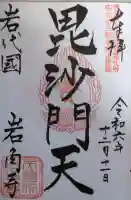 奉拝
令和六年
十二月十一日
毘沙門天
岩代國
岩角寺